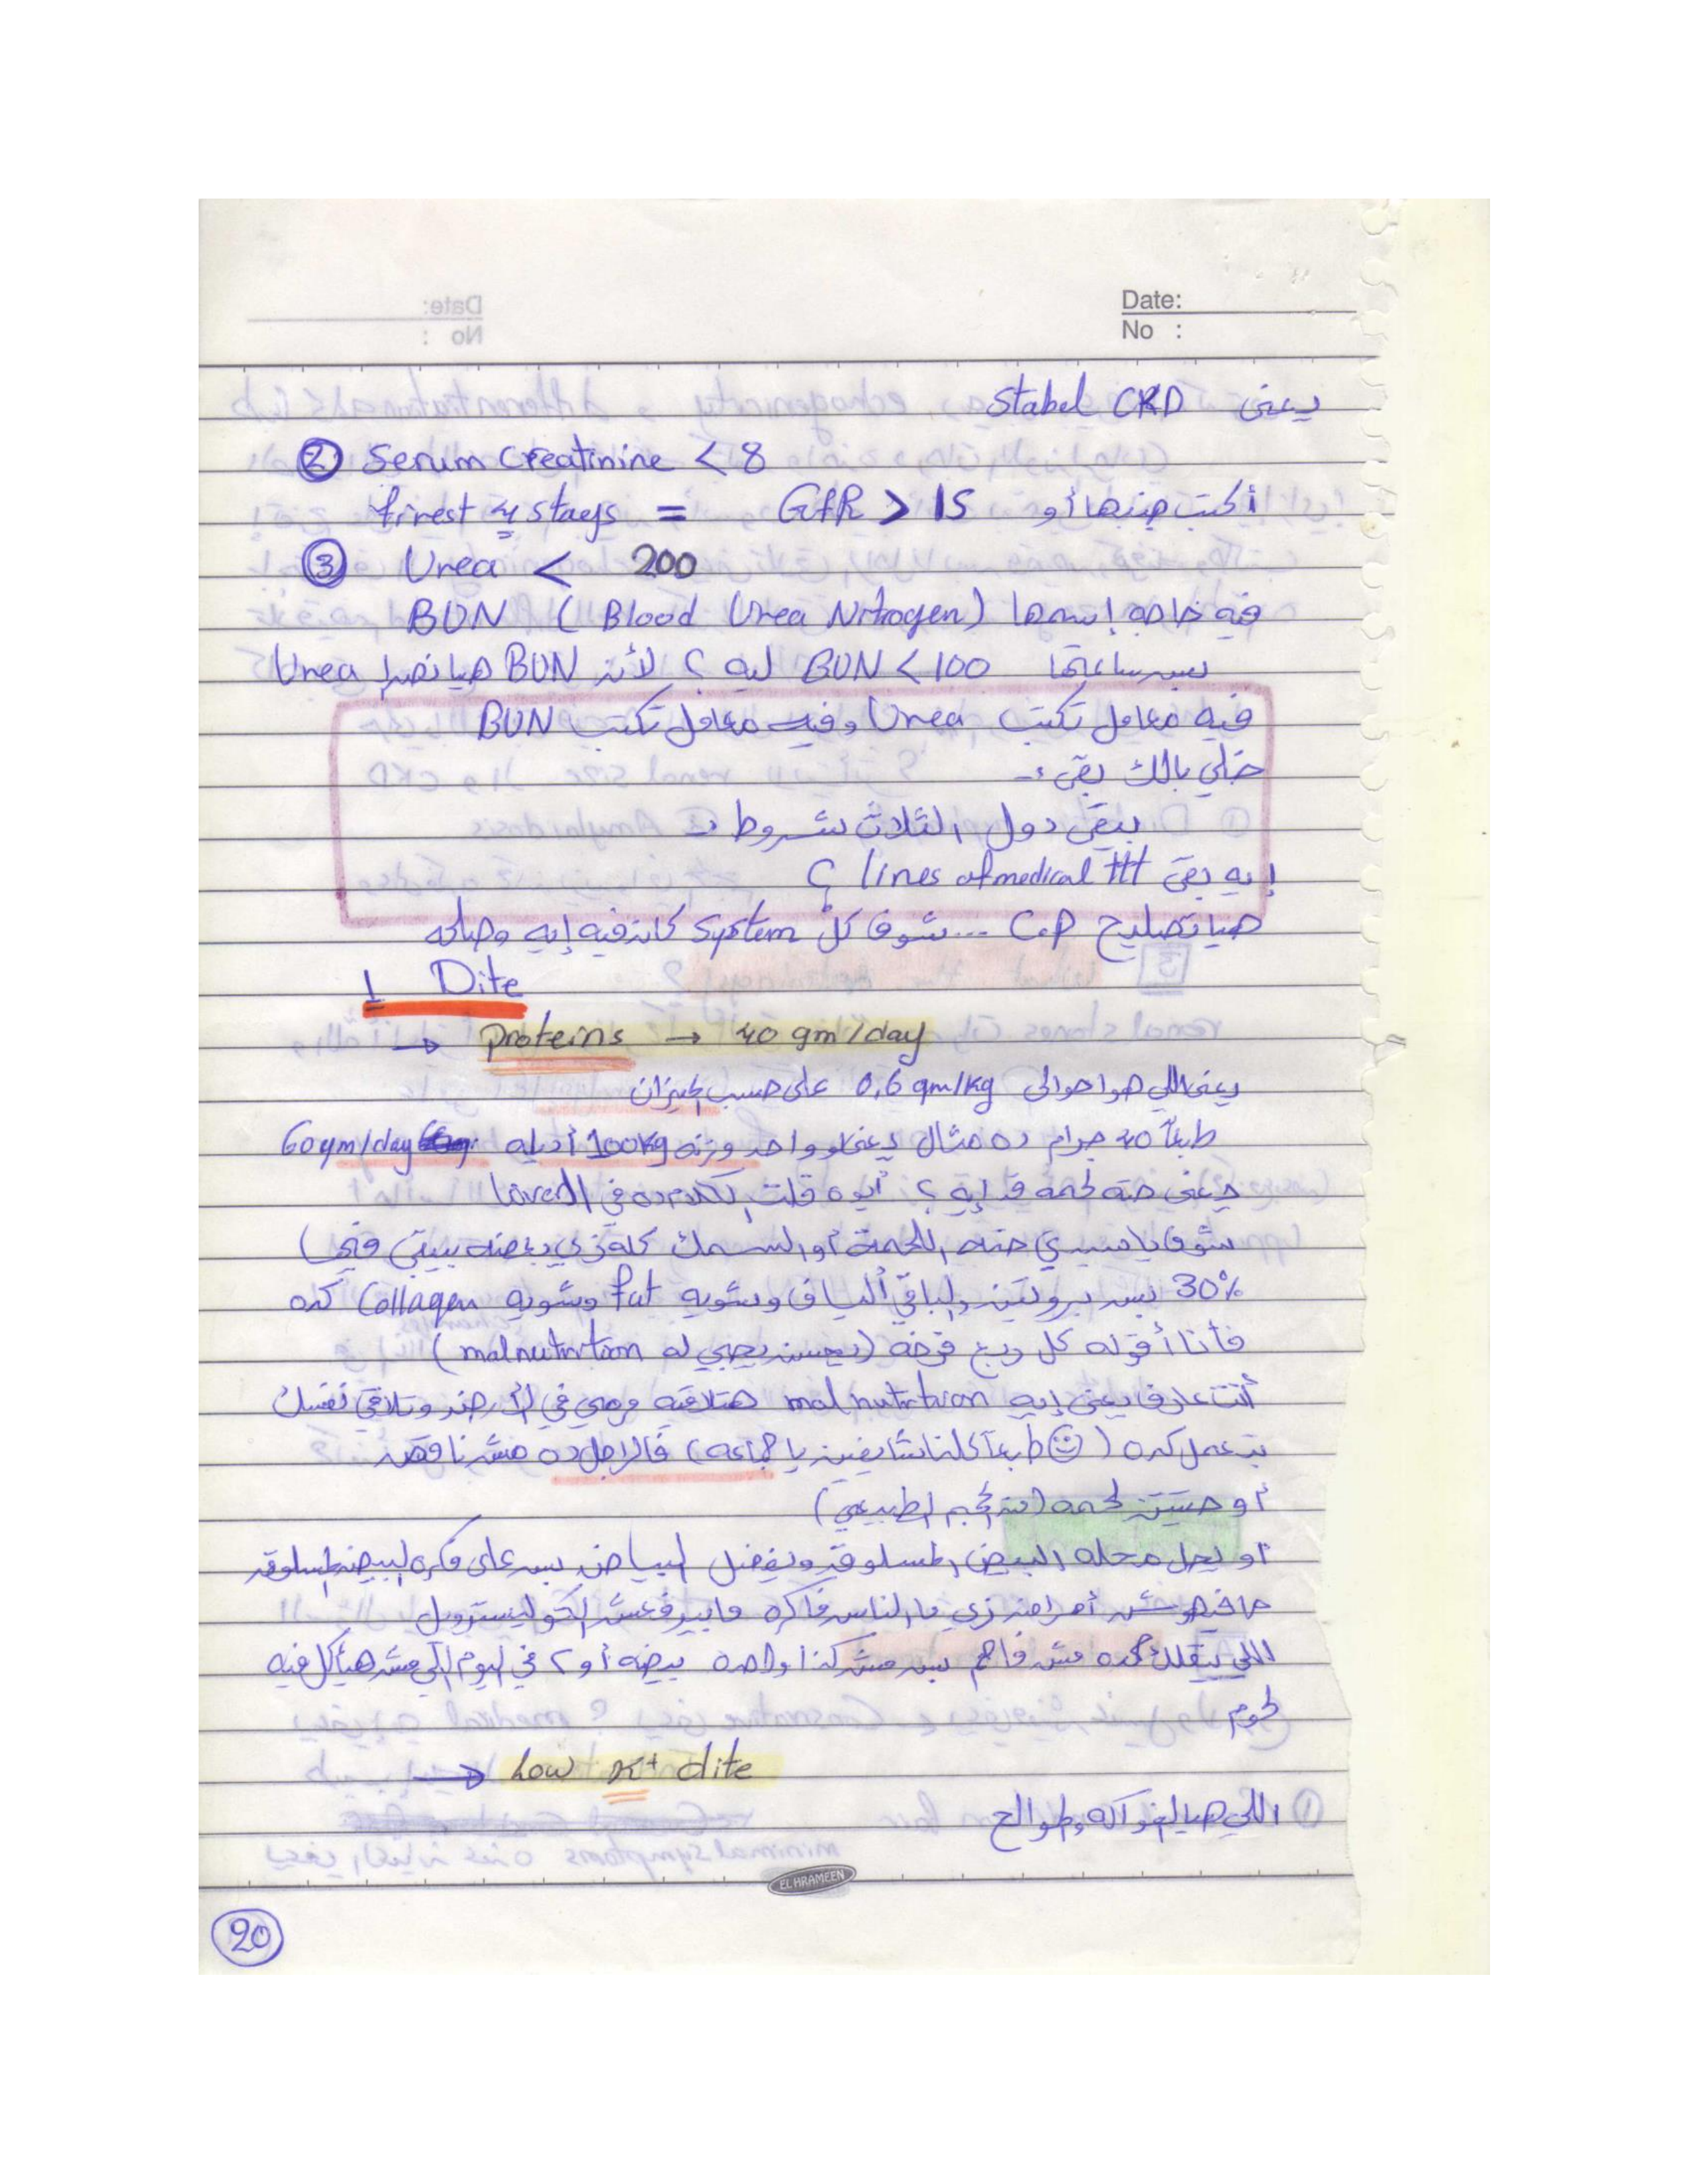 Date:
No :
يعنى Stabel CKD
② Serum Creatinine < 8
أكتب جنبها أو GFR > 15 = firest 4 staegs
③ Urea < 200
فيه حاجه إسمها BUN ( Blood Urea Nitrogen)
بس ساعتها BUN < 100 ليه ؟ لأن BUN هيا نص ال Urea
فيه معامل تكتب Urea وفيه معامل تكتب BUN
خلي بالك بقى :-
يبقى دول الثلاث شروط :-
إيه بقى lines of medical ttt ؟
هيا تصليح C.P ... شوف كل System كان فيه إيه وصلحه
1 Dite
→ proteins → 40 gm/day
يعنى اللي هوا حوالى 0.6 gm/kg على حسب الميزان
طبعاً 40 جرام ده مثال يعنى لو واحد وزنه 100kg أديله 60 gm/day
يعنى حتة لحمه قد إيه ؟ أيوه قلت الكلام ده في ال Liver
شوف يا سيدي حته اللحمة أو السمك كله زي بعضه بيبقى فيه (
30% بس بروتين والباقي ألياف وشويه fat وشويه Collagen كده
فأنا أقوله كل ربع فرخه ( malnutrition يجي له)
أنت عارف يعنى إيه malnutrition هتلاقيه مرمي في الأرض وتلاقي نفسك
بتعمل كده (☺ طبعاً كلنا شايفين يا جماعه) فالراجل ده مش ناقص
أو حتتين لحمه (من الحجم الطبيعي)
أو يحل محله البيض المسلوق ويفضل البياض بس على فكره البيض المسلوق
مافيهوش أمراض زي ما الناس فاكره مابيرفعش الكوليسترول
اللي يقلك كده مش فاهم بس مش كذا واحده بيضه أو ٢ في اليوم اللي مش هيأكل فيه
لحوم
→ Low K+ dite
① اللي هيا الفواكه والموالح
EL HRAMEEN
20